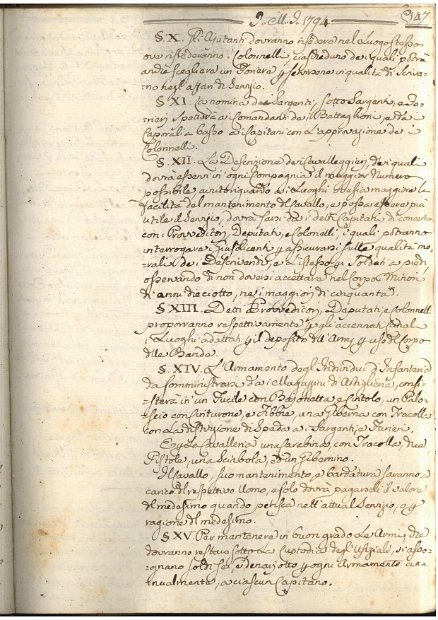 9. Mg. 1794
§ X. Gl'Ajutanti dovranno risiedere nel Luogo stesso
ove risiederanno i Colonnelli, ciascheduno de' quali potrà
anche scegliere un Foriere per servirsene in qualità di Scriva-
no negl'affari di Servizio.
§ XI La nomina de Sargenti, Sotto Sargenti, e Fo-
rieri spetterà a Comandanti de i Battaglioni, e de
Caporali a basso ai Capitani con l'approvazione de
Colonelli.
§. XII. La Descrizione dei Cavalleggieri, de i quali
dovrà esservi in ogni Compagnia il maggior Numero
possibile a motivo che ai Luoghi ove sia maggiore la
facilità del mantenimento del Cavallo, e possa essere più
utile il Servizio, dovrà farsi da i detti Capitani di concerto
con i Provveditori, Deputati, e Colonelli, i quali potranno
interrogare i Giusdicenti per assicurarsi sulle qualità mo-
rali de i Descrivendi, e lo stesso per i Soldati a piedi
osservando di non doversi accettare nel Corpo Minori
di anni dieciotto, ne i maggiori di cinquanta.
§ XIII. Detti Provveditori, Deputati, e Colonnelli
proporranno respettivamente per gli accennati
Luoghi adattati per il deposito delle Armi, per uso del Corpo
delle Bande.
§. XIV. L'Armamento degli Individui d'Infanteria
da somministrarsi da i Magazzini di Artiglieria, consi-
sterà in un Fucile con Bajonetta, e Cintolo, un Palo-
scio con Centurone, e Fibbia, una Giberna con Tracolla
con la distinzione di Spada a i Sargenti, e Forieri.
E per la Cavalleria una Carabina, con Tracolla, due
Pistole, una Sciabola, ed un Gibernino.
Il Cavallo, suo mantenimento, e bardatura saranno a
carico del respettivo Uomo, e solo dovrà pagarseli il valore
del medesimo quando perisca nell'attual Servizio, e per
cagione del medesimo.
§ XV. Per mantenere in buon grado le Armi, che
dovranno restare sotto la Custodia degl'Ufiziali, si asse-
gnano soldi sei e denari otto per ogni Armamento an-
nualmente, a ciascun Capitano.